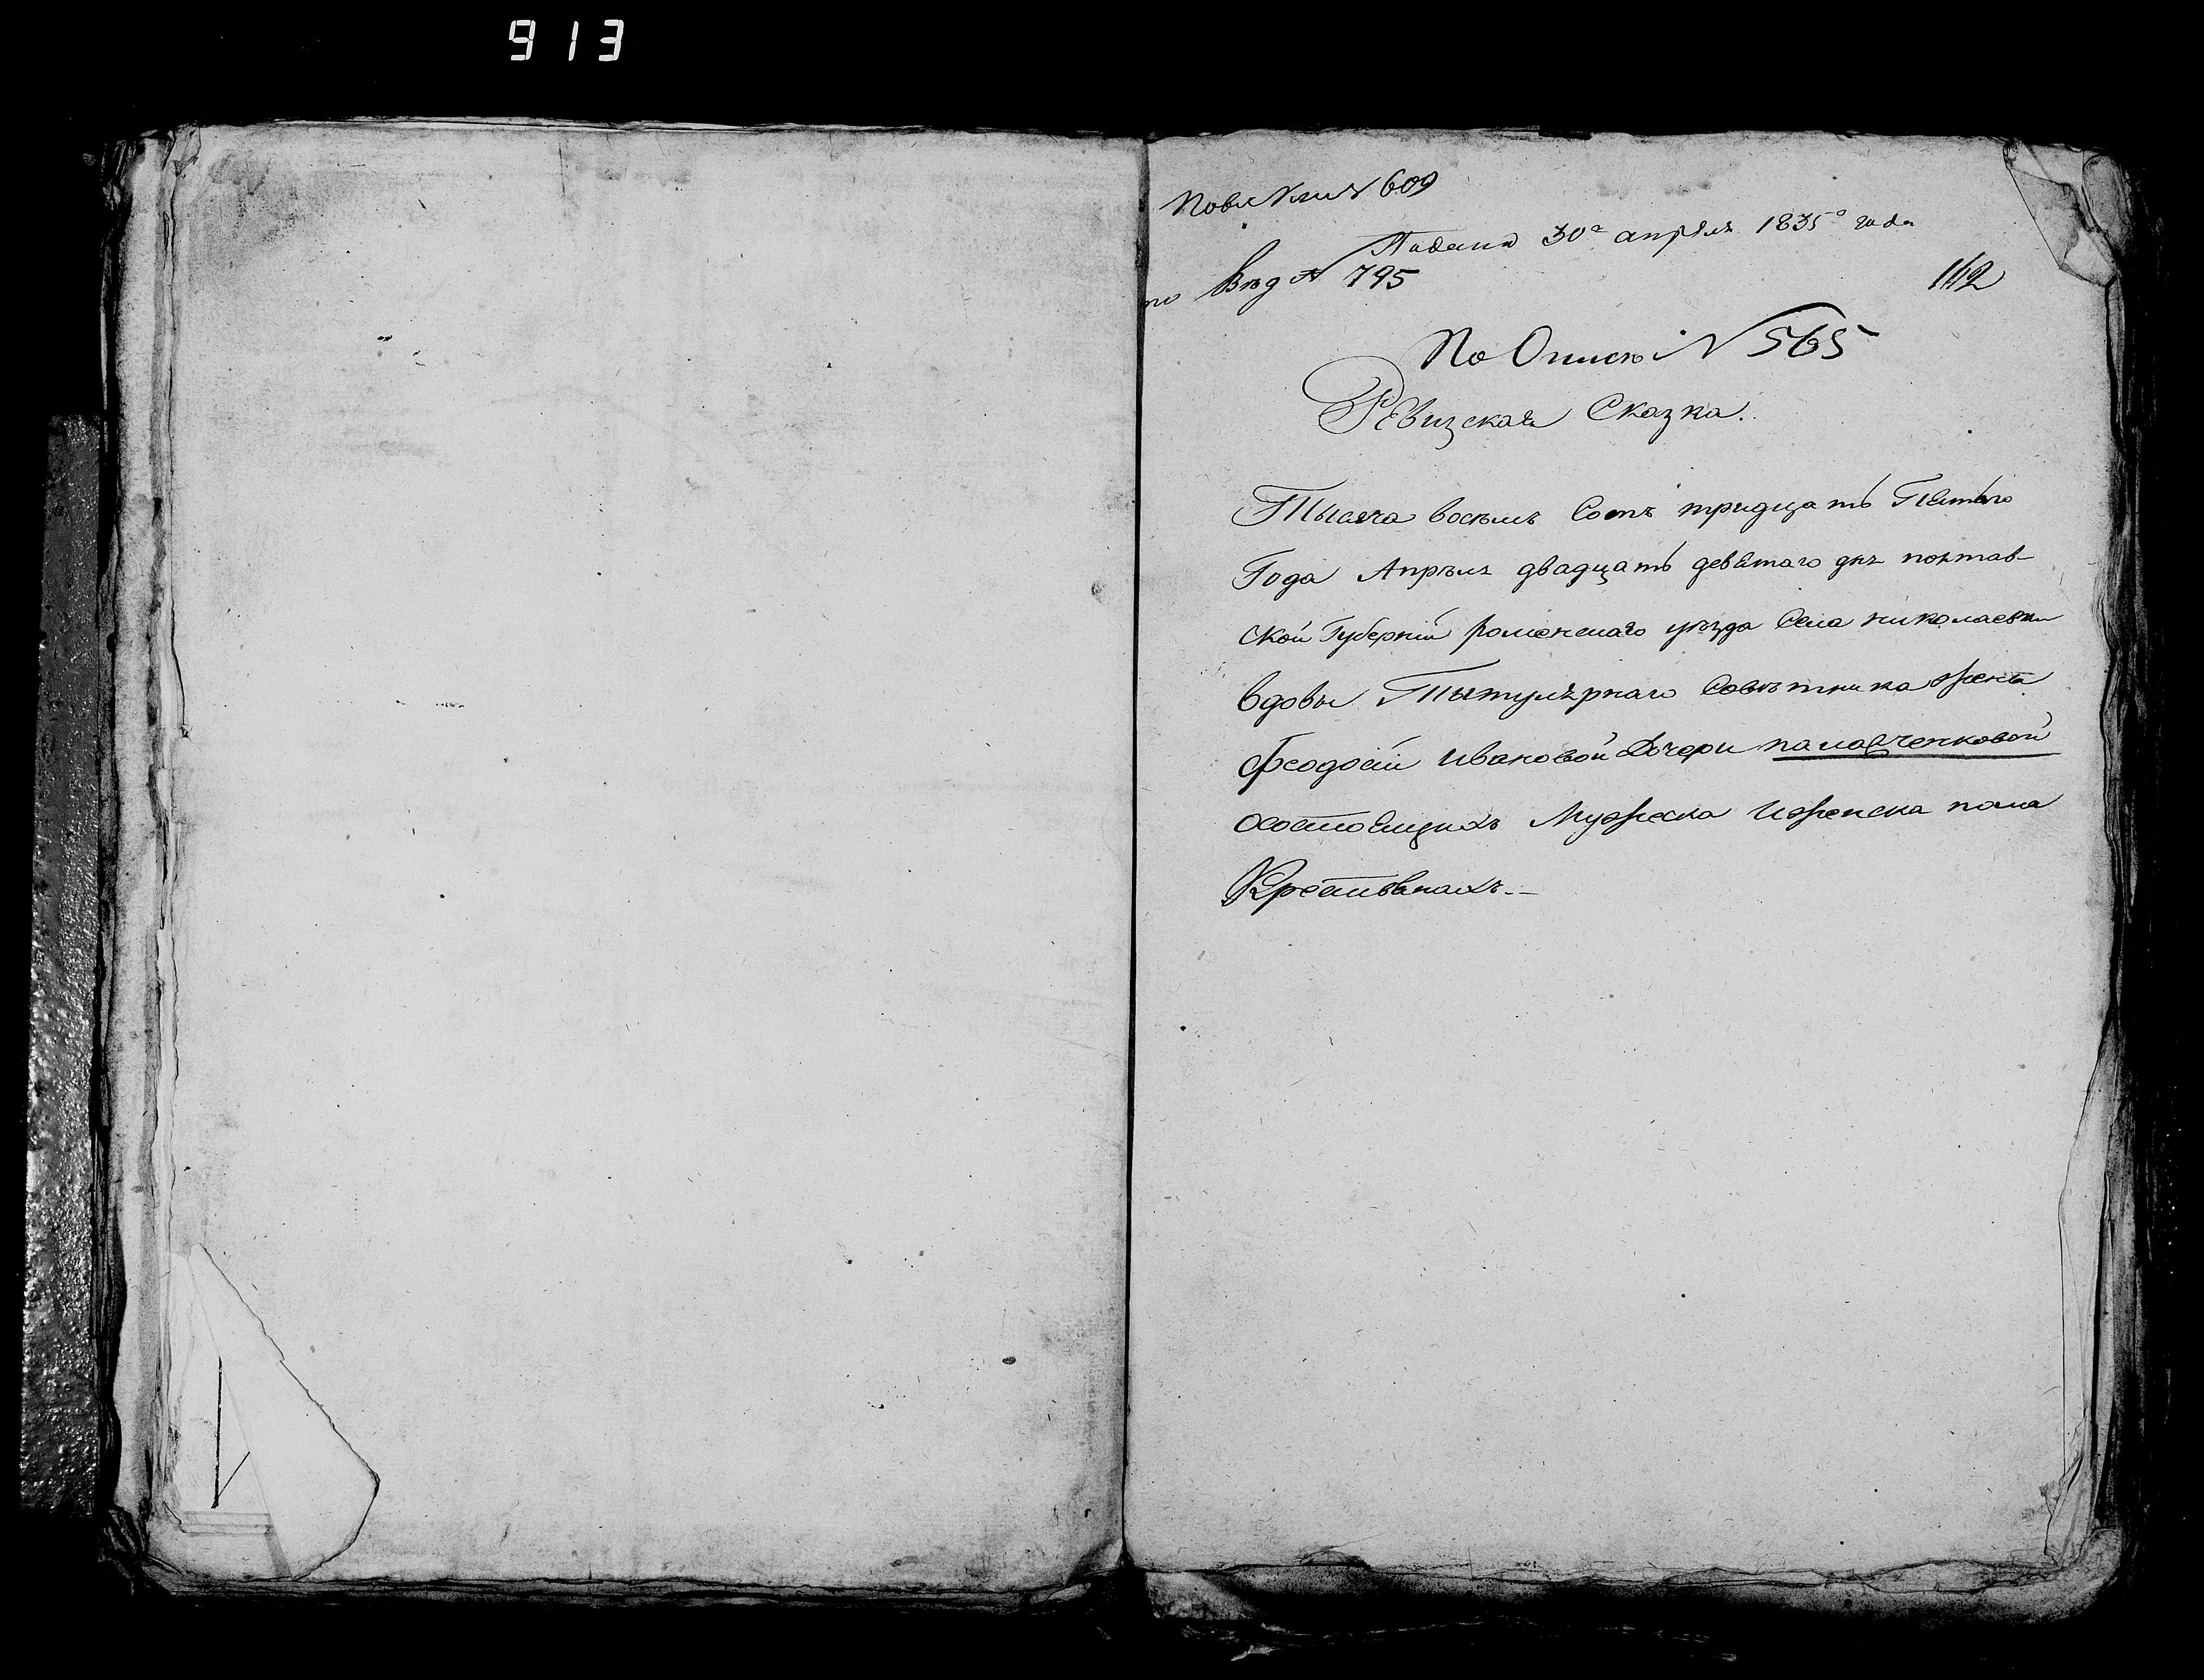 913
№ 609
Подана 30го апреля 1835го года
по Вед № 795
1112
По Описѣ № 565
Ревизская Сказка.
Тысяча восѣмъ Сотъ тридцать Пятаго
Года Апрѣля двадцать девятаго дня полтав-
ской Губерніи роменскаго уѣзда Села николаевки
вдовы Тытулярнаго Совѣтника жени
Феодосіи ивановой Дочери палавченковой
о состоящихъ Мужеска иженска пола
Крестьянахъ.-